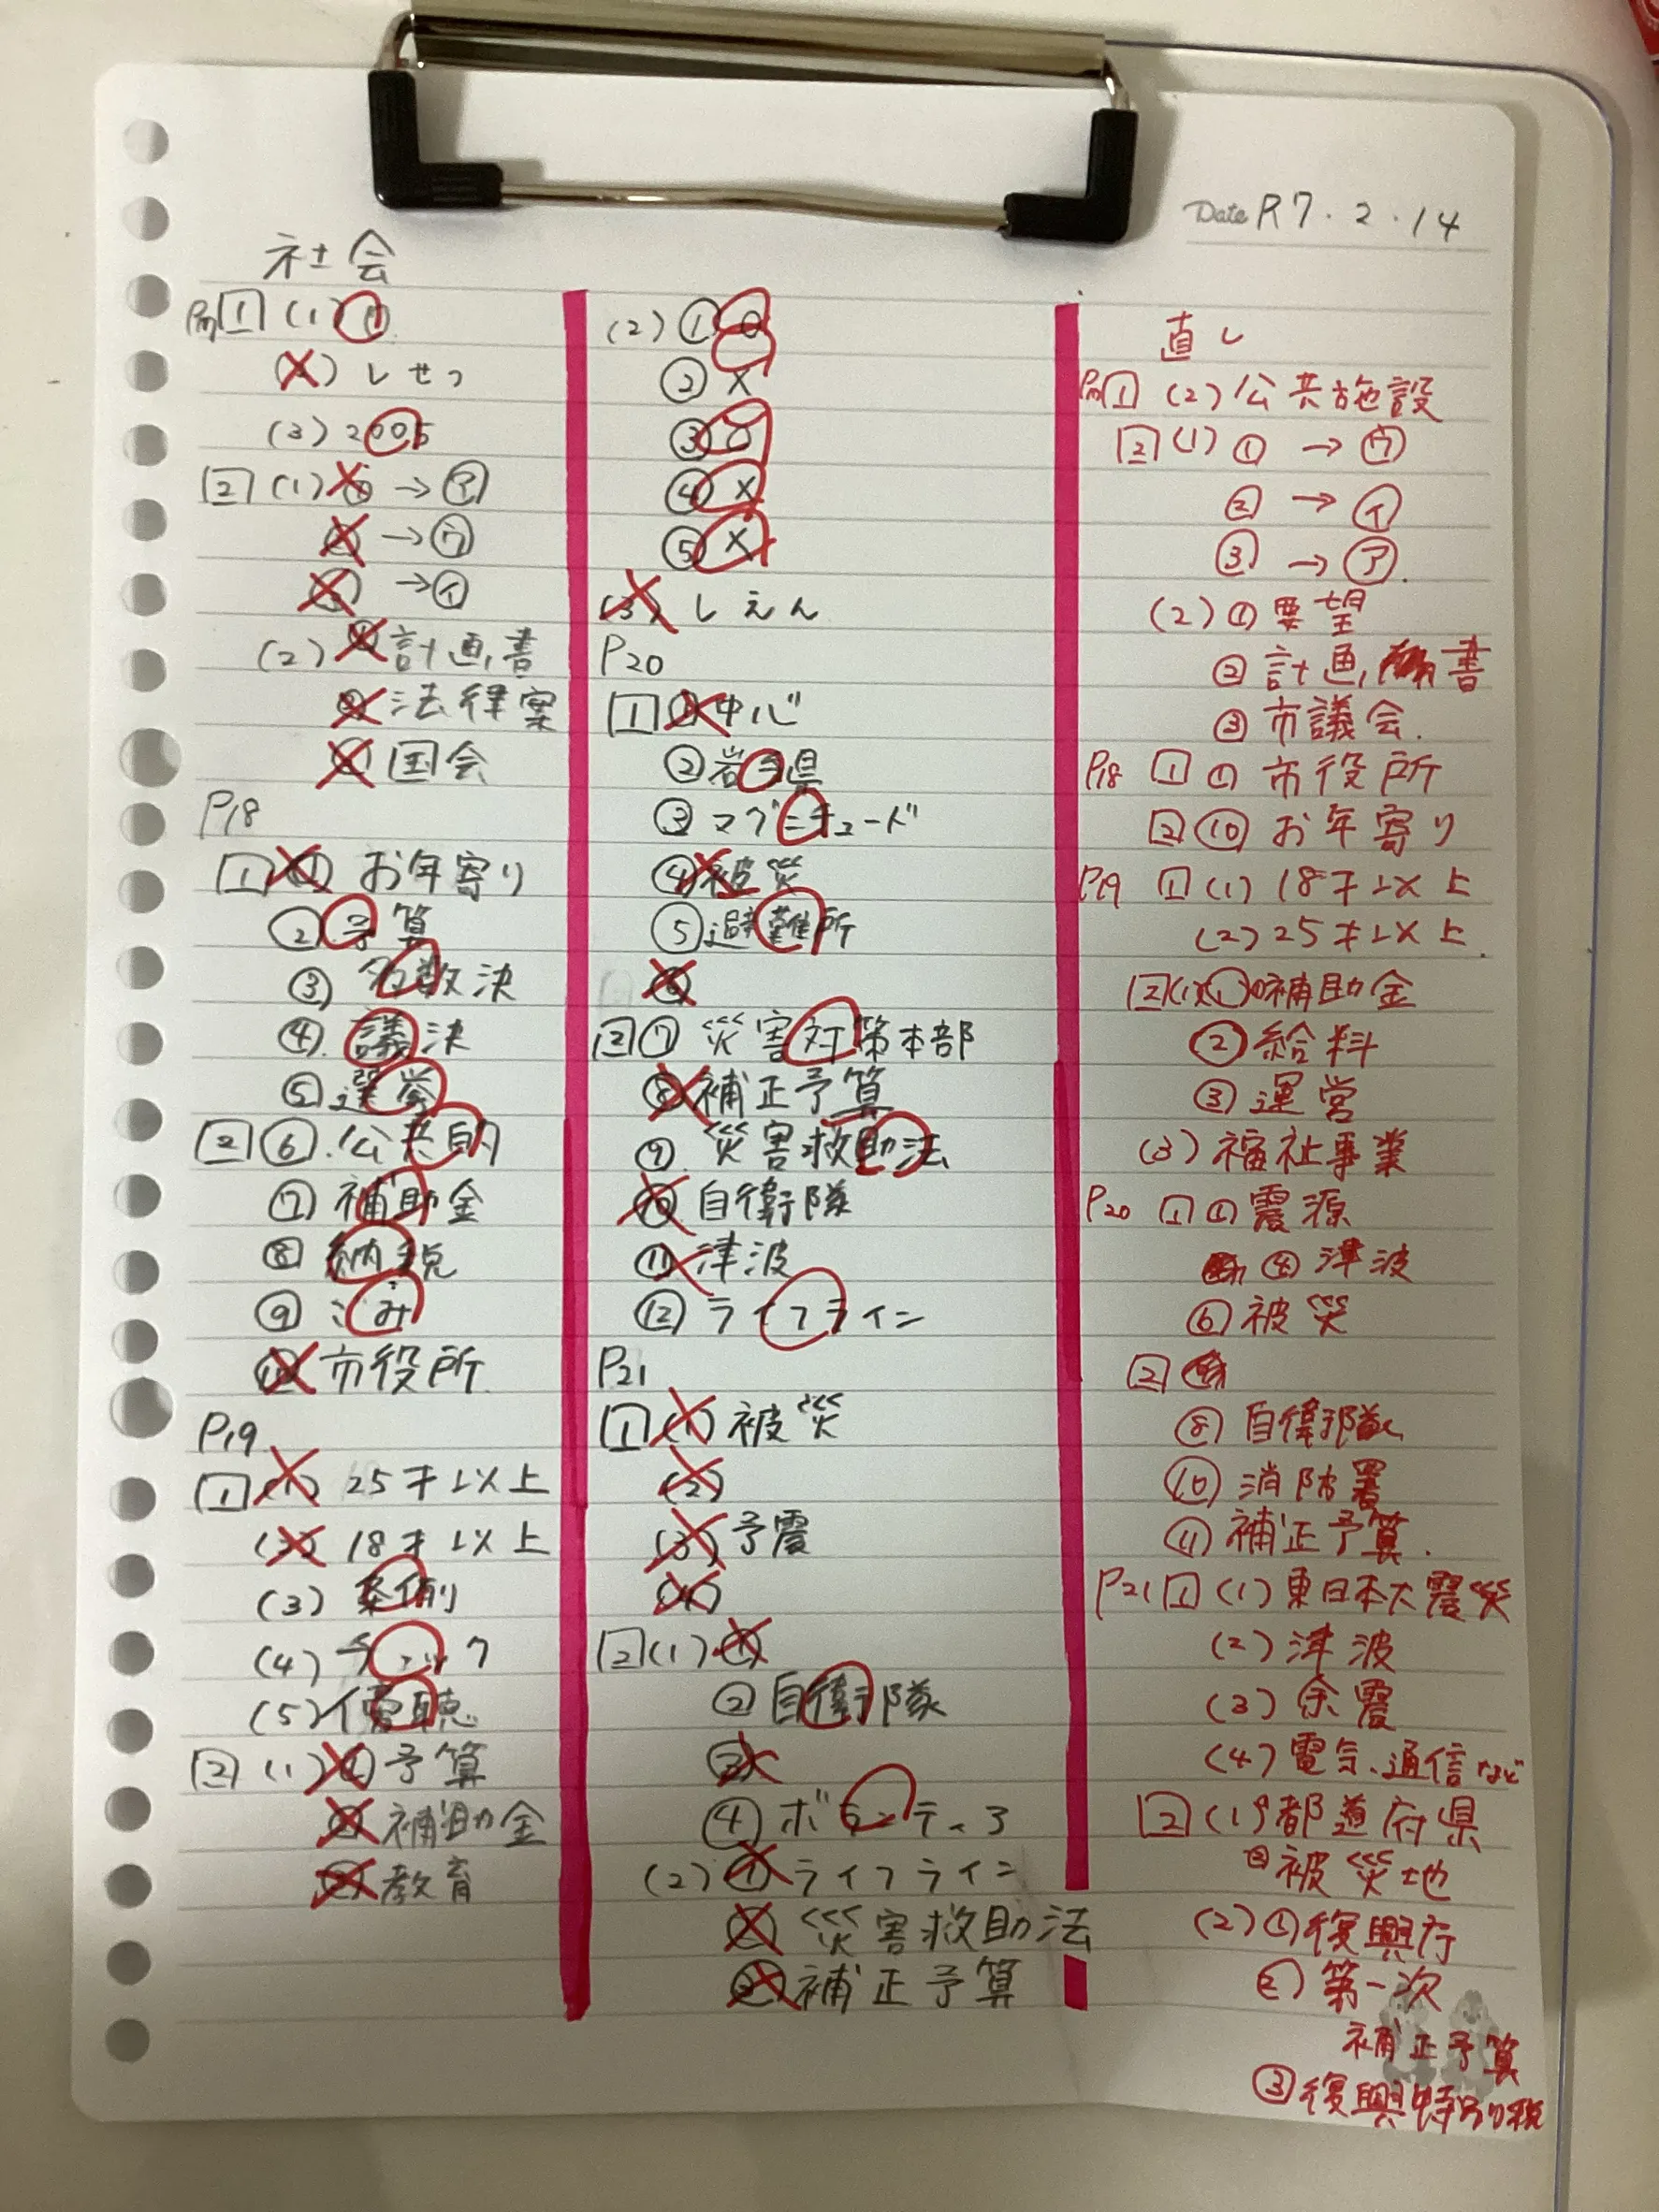 Date R7.2.14
社会
P17 1 (1) ①
(2) しせつ
(3) 2005
2 (1) ① → ㋐
② → ㋒
③ → ㋑
(2) ① 計画書
② 法律案
③ 国会
P18
1 ① お年寄り
② 予算
③ 多数決
④ 議決
⑤ 選挙
2 ⑥ 公共的
⑦ 補助金
⑧ 納税
⑨ ごみ
⑩ 市役所
P19
1 (1) 25才以上
(2) 18才以上
(3) 条例
(4) チェック
(5) 傍聴
2 (1) ① 予算
② 補助金
③ 教育
(2) ① ○
② ×
③ ○
④ ×
⑤ ×
(3) しえん
P20
1 ① 中心
② 岩手県
③ マグニチュード
④ 被災
⑤ 避難所
⑥
2 ⑦ 災害対策本部
⑧ 補正予算
⑨ 災害救助法
⑩ 自衛隊
⑪ 津波
⑫ ライフライン
P21
1 (1) 被災
(2)
(3) 予震
(4)
2 (1) ①
② 自衛隊
③
④ ボランティア
(2) ① ライフライン
② 災害救助法
③ 補正予算
直し
P17 1 (2) 公共施設
2 (1) ① → ㋒
② → ㋑
③ → ㋐
(2) ① 要望
② 計画書
③ 市議会
P18 1 ① 市役所
2 ⑩ お年寄り
P19 1 (1) 18才以上
(2) 25才以上
2 (1) ① 補助金
② 給料
③ 運営
(3) 福祉事業
P20 1 ① 震源
④ 津波
⑥ 被災
2
⑧ 自衛隊
⑩ 消防署
⑪ 補正予算
P21 1 (1) 東日本大震災
(2) 津波
(3) 余震
(4) 電気、通信など
2 (1) ① 都道府県
③ 被災地
(2) ① 復興庁
② 第一次
補正予算
③ 復興特別税